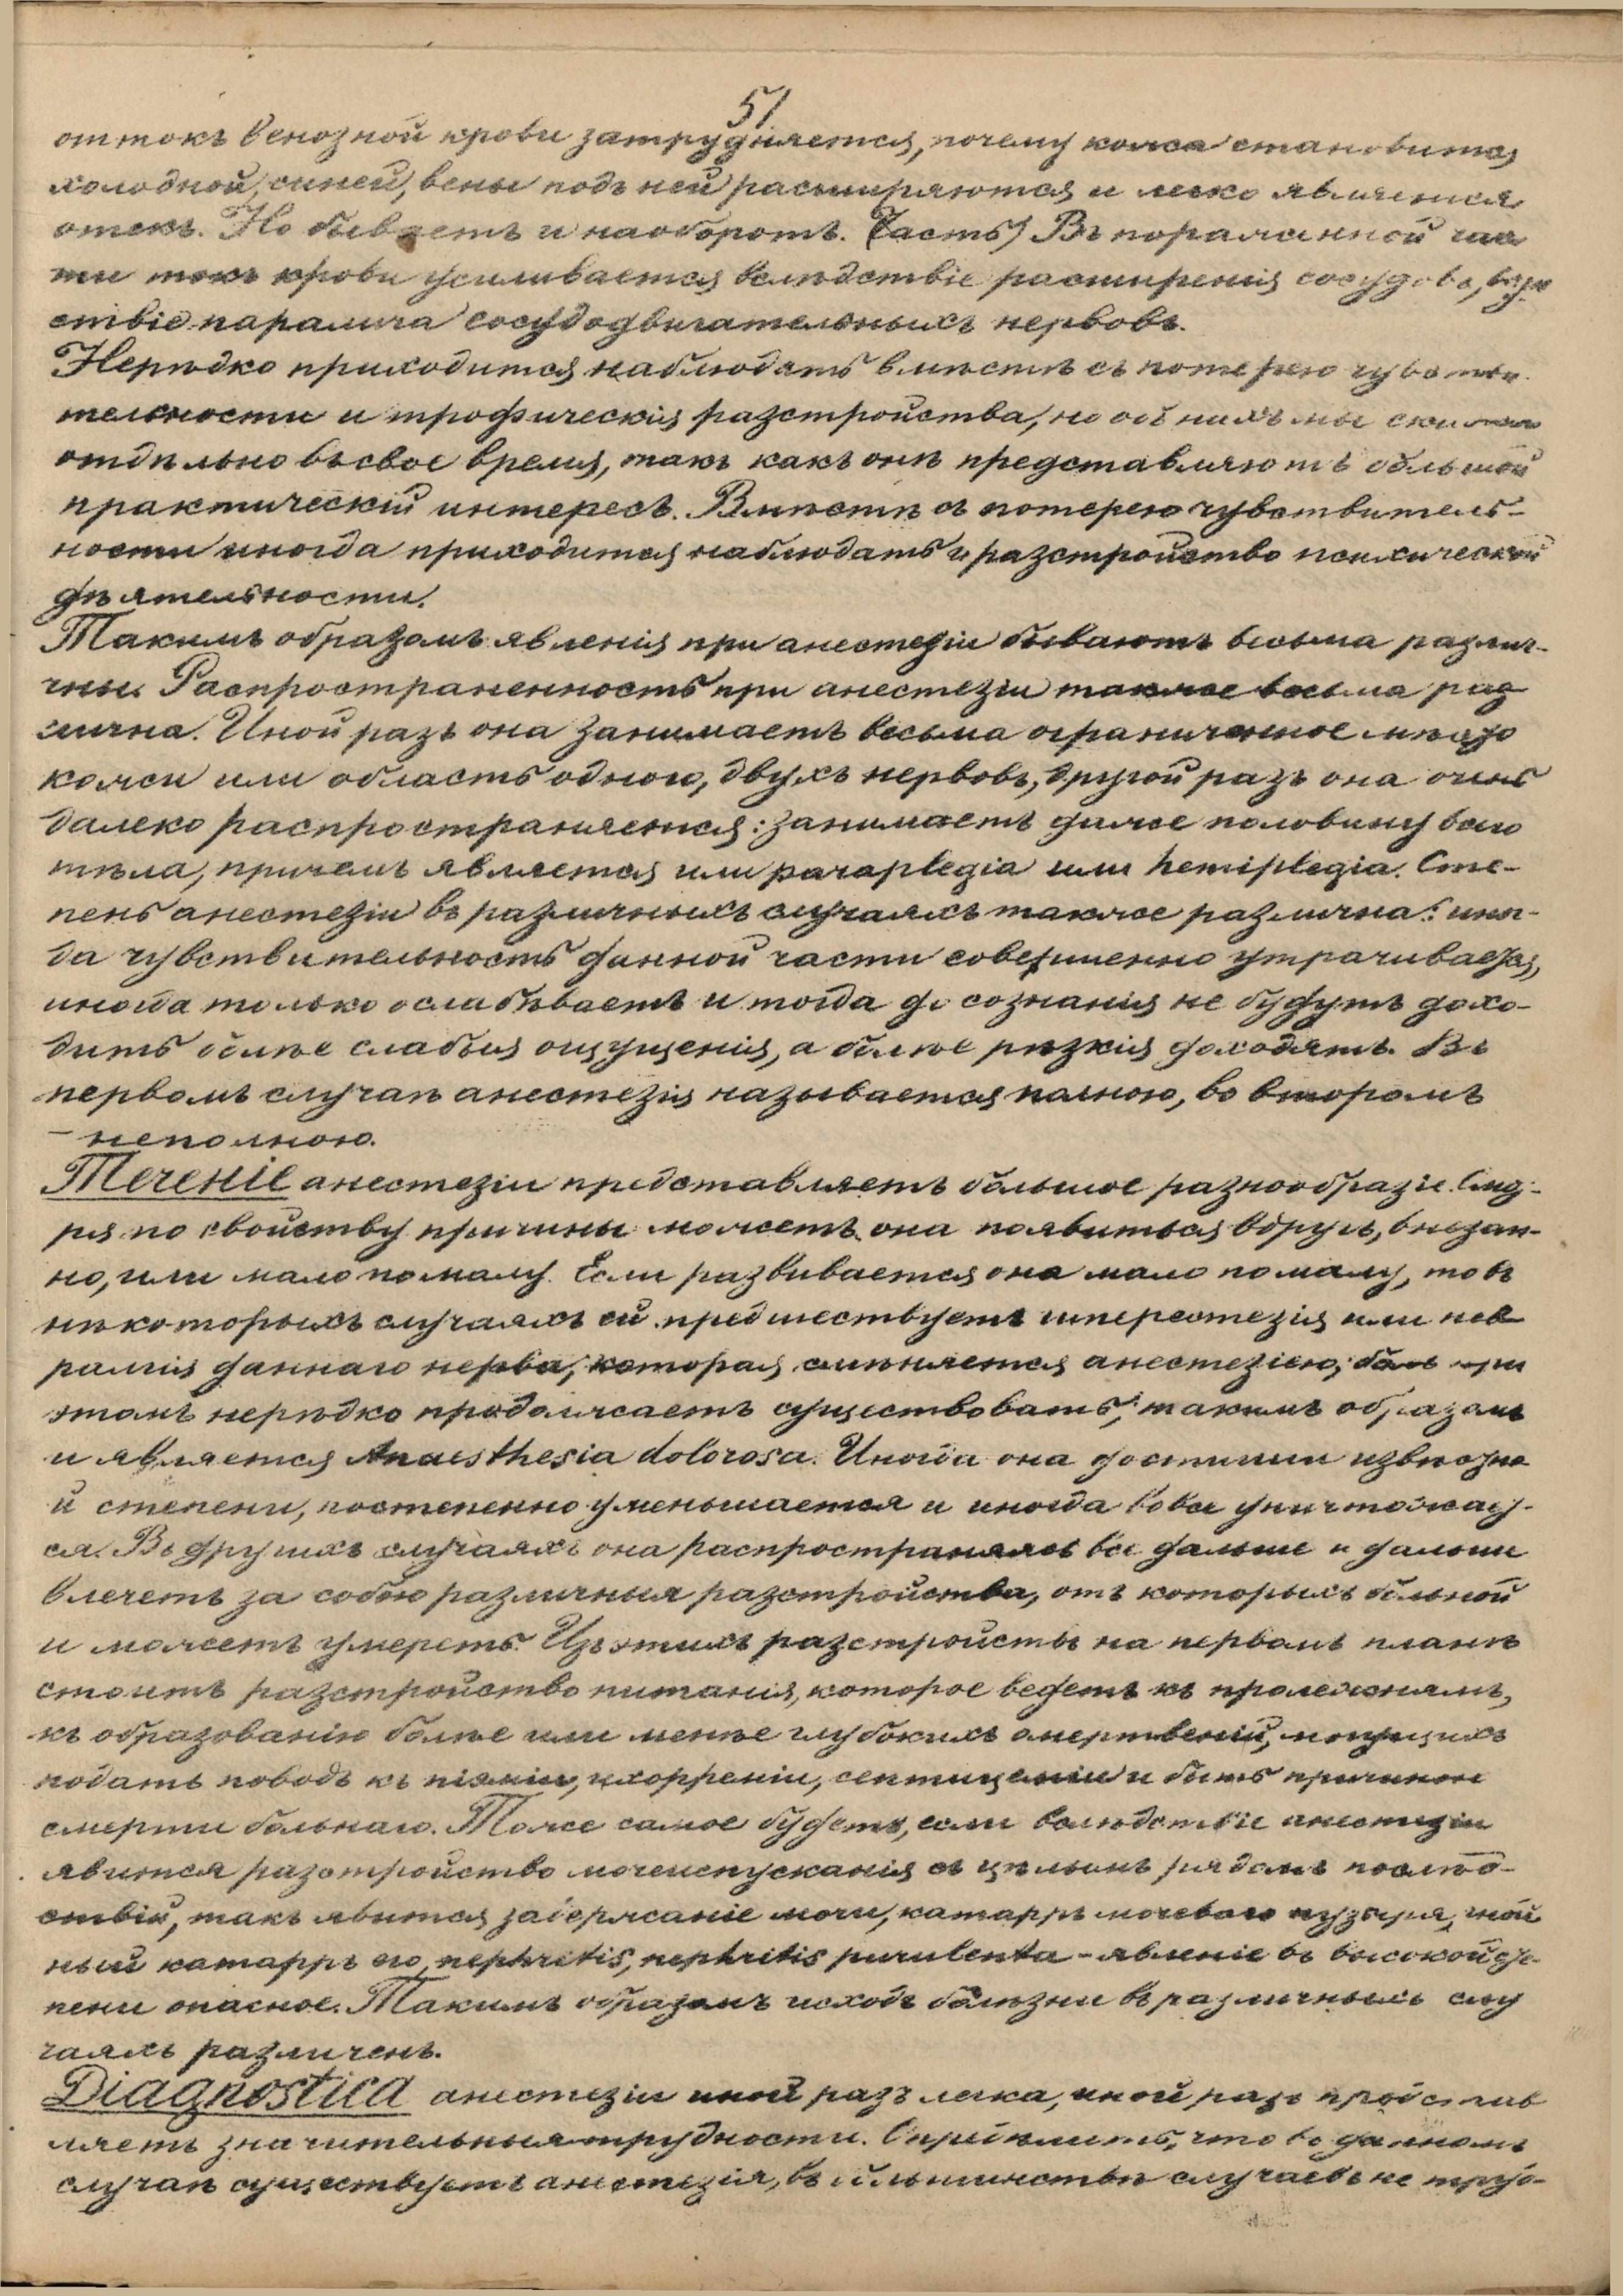 51
оттокъ венозной крови затрудняется, почему кожа становится
холодной, синей, вены подъ ней расширяются и легко является
отекъ. Но бываетъ и наоборотъ. (Часть) Въ пораженной час
ти токъ крови усиливается вслѣдствіе расширенія сосудовъ, вслѣд
ствіе паралича сосудодвигательныхъ нервовъ.
Нерѣдко приходится наблюдать вмѣстѣ съ потерею чувстви
тельности и трофическія разстройства, но объ нихъ мы скажемъ
отдѣльно въ свое время, такъ какъ онѣ представляютъ большой
практическій интересъ. Вмѣстѣ съ потерею чувствитель-
ности иногда приходится наблюдать и разстройство психической
дѣятельности.
Такимъ образомъ явленія при анестезіи бываютъ весьма различ-
ны. Распространенность при анестезіи также весьма раз
лична. Иной разъ она занимаетъ весьма ограниченное мѣсто
кожи или область одного, двухъ нервовъ, другой разъ она очень
далеко распространяется: занимаетъ даже половину всего
тѣла, причемъ является или paraplegia или hemiplegia. Сте-
пень анестезіи въ различныхъ случаяхъ также различна: иног-
да чувствительность данной части совершенно утрачивается,
иногда только ослабѣваетъ и тогда до сознанія не будутъ дохо-
дить болѣе слабыя ощущенія, а болѣе рѣзкія доходятъ. Въ
первомъ случаѣ анестезія называется полною, во второмъ
– неполною.
Теченіе анестезіи представляетъ большое разнообразіе. Смот-
ря по свойству причины можетъ она появиться вдругъ, внезап-
но, или мало по малу. Если развивается она мало по малу, то въ
нѣкоторыхъ случаяхъ ей предшествуетъ гиперестезія или нев
ралгія даннаго нерва, которая смѣняется анестезіею; боль при
этомъ нерѣдко продолжаетъ существовать; такимъ образомъ
и является Anaesthesia dolorosa. Иногда она достигши извѣстно
й степени, постепенно уменьшается и иногда вовсе уничтожает-
ся. Въ другихъ случаяхъ она распространяясь все дальше и дальше
влечетъ за собою различныя разстройства, отъ которыхъ больной
и можетъ умереть. Изъ этихъ разстройствъ на первомъ планѣ
стоитъ разстройство питанія, которое ведетъ къ пролежнямъ,
къ образованію болѣе или менѣе глубокихъ омертвеній, могущихъ
подать поводъ къ піэміи, ихорреміи, септицеміи и быть причиною
смерти больнаго. Тоже самое будетъ, если вслѣдствіе анестезіи
явится разстройство мочеиспусканія съ цѣлымъ рядомъ послѣд-
ствій, такъ явится задержаніе мочи, катарръ мочеваго пузыря, гной
ный катарръ его, nephritis, nephritis purulenta – явленіе въ высокой сте-
пени опасное. Такимъ образомъ исходъ болѣзни въ различныхъ слу
чаяхъ различенъ.
Diagnostica анестезіи иной разъ легка, иной разъ представ
ляетъ значительныя трудности. Опредѣлить, что въ данномъ
случаѣ существуетъ анестезія, въ большинствѣ случаевъ не труд-